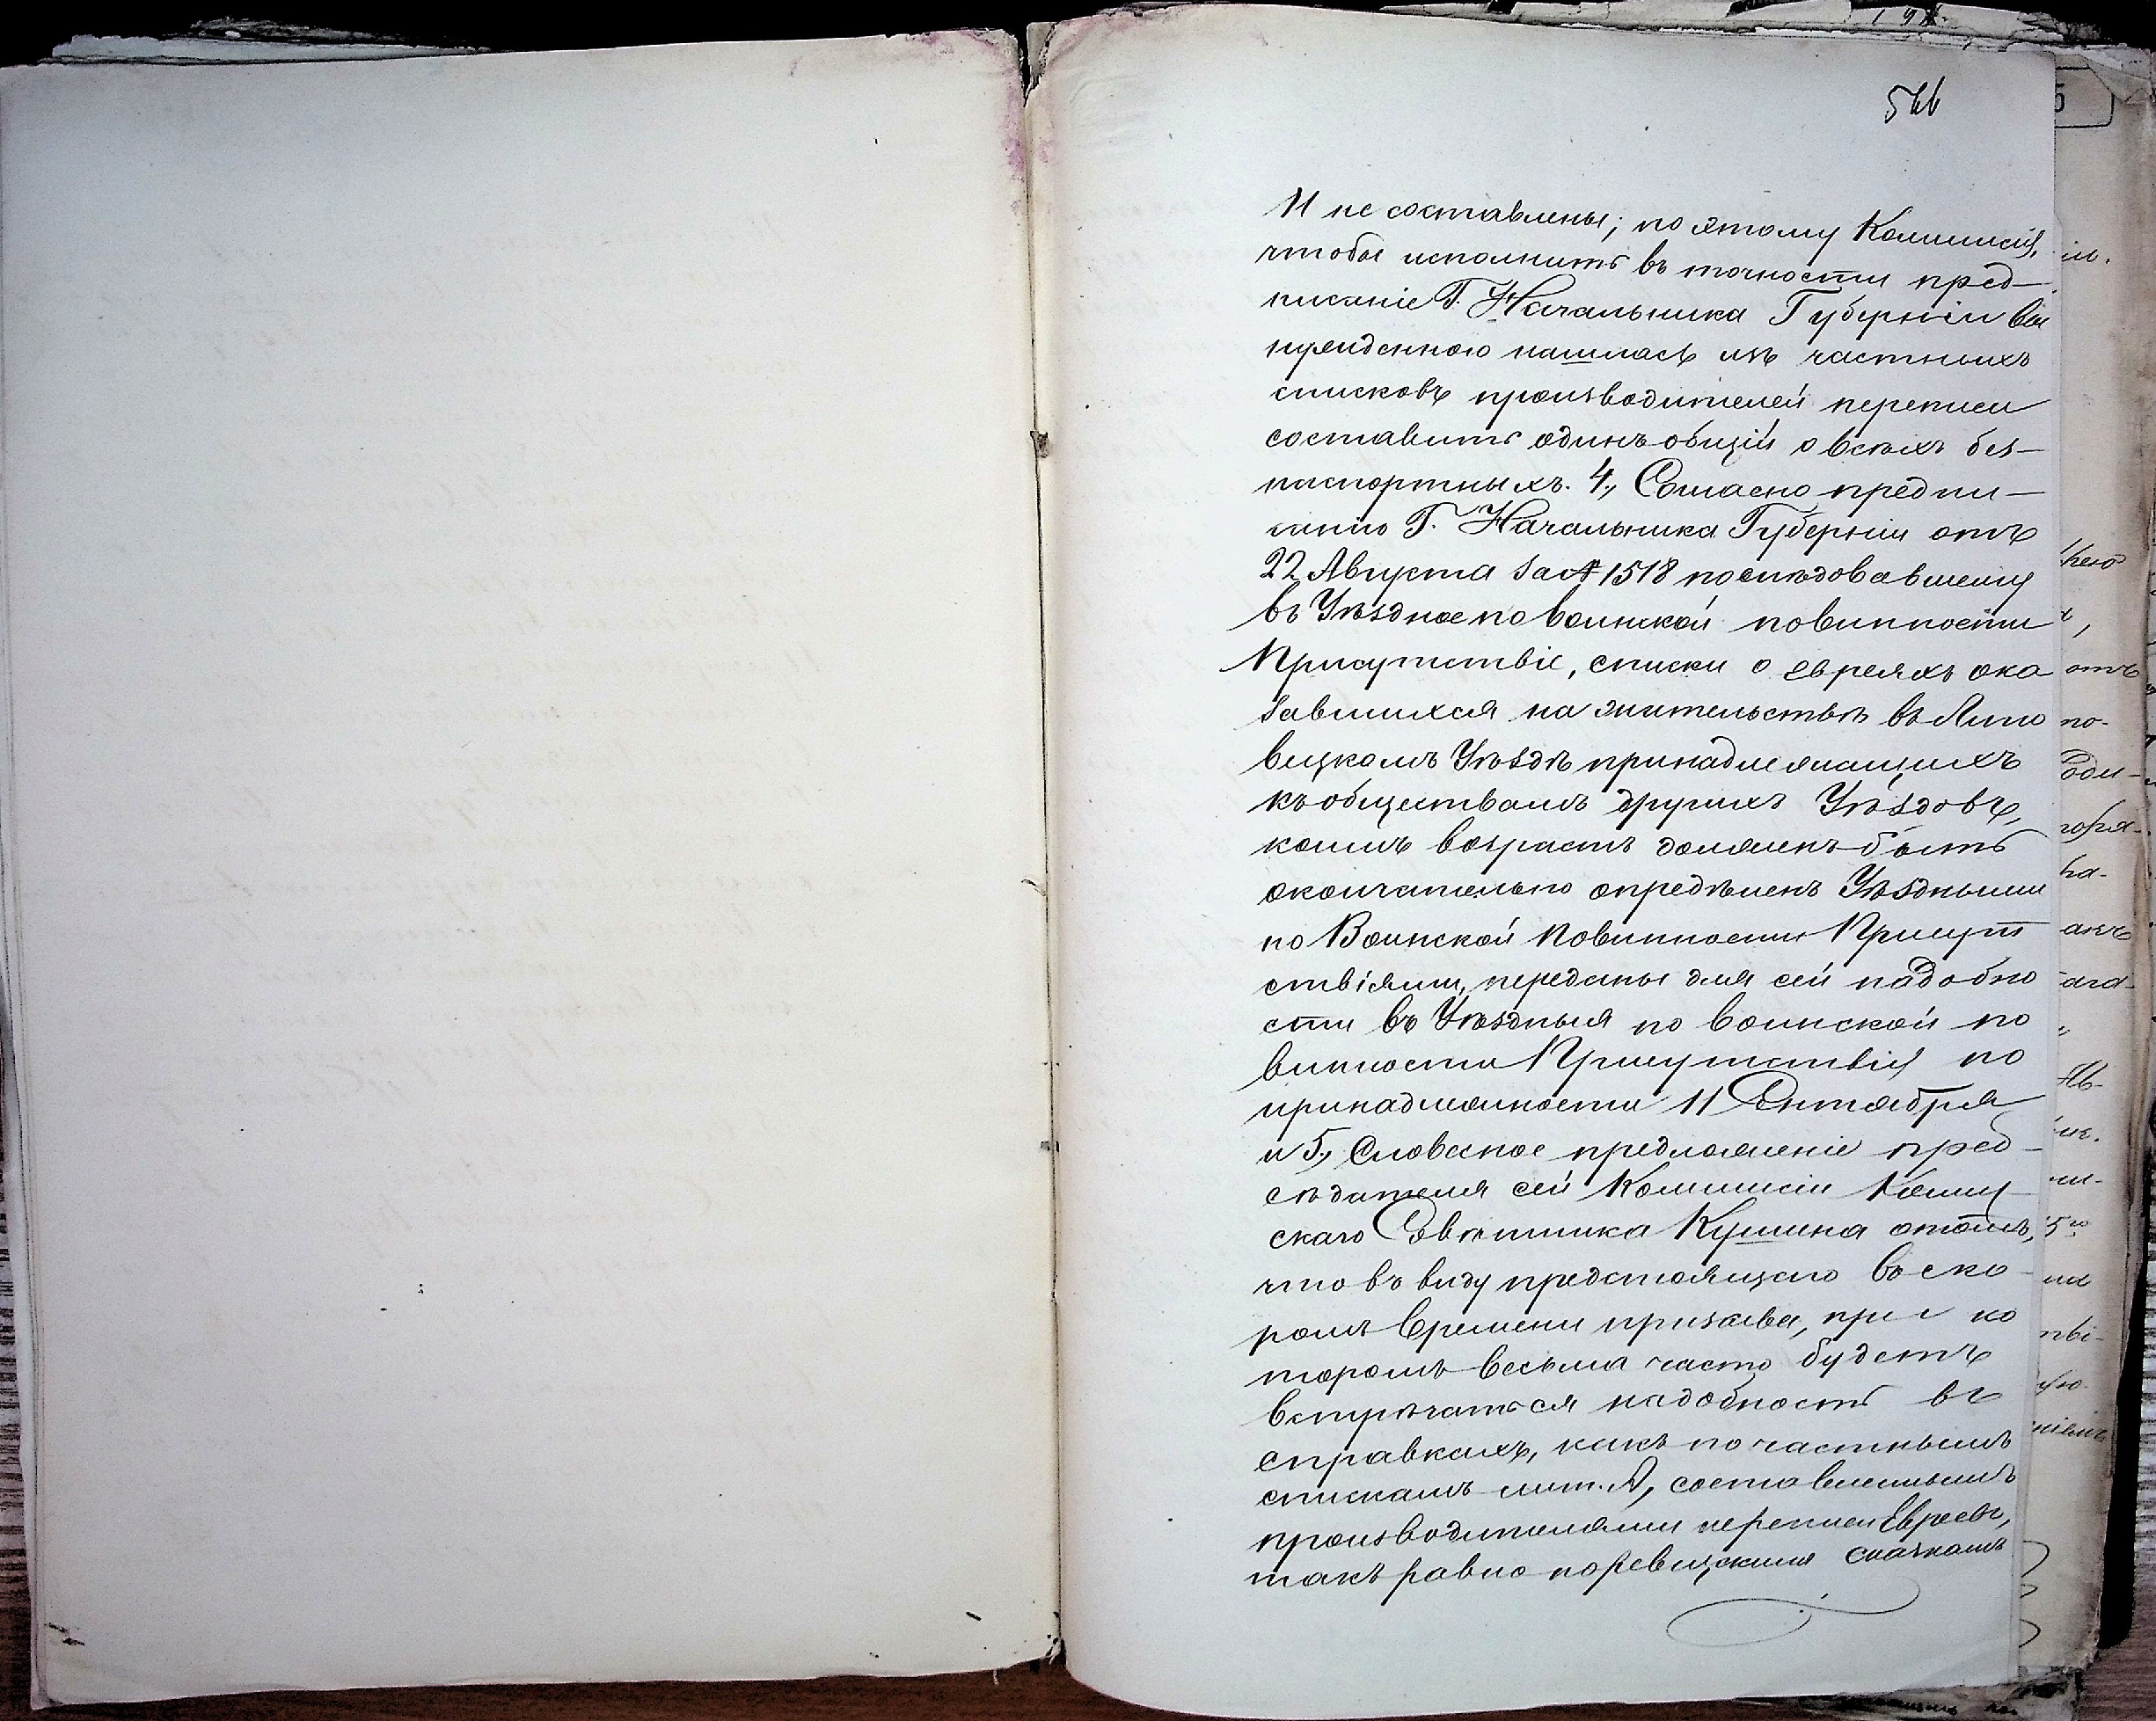 566
И не составлены; по этому Коммисія,
чтобы исполнить въ точности пред-
писаніе Г. Начальника Губерніи вы
нужденною нашлась изъ частныхъ
списковъ производителей переписи
составить одинъ общій о всѣхъ без-
паспортныхъ. 4., Согласно предпи-
санію Г. Начальника Губерніи отъ
22 Августа за № 1518 послѣдовавшему
въ Уѣздное по воинской повинности
Присутствіе, списки о евреяхъ ока
завшихся на жительствѣ въ Липо
вецкомъ Уѣздѣ принадлежащихъ
къ обществамъ другихъ Уѣздовъ,
коимъ возрастъ долженъ быть
окончательно опредѣленъ Уѣздными
по Воинской Повинности Присут
ствіями, переданы для сей надобно
сти въ Уѣздныя по воинской по
винности Присутствія по
принадлежности 11 Сентября
и 5., Словесное предложеніе пред-
сѣдателя сей Коммисіи
скаго Совѣтника отомъ,
что въ виду предстоящаго въ ско-
ромъ времени призыва, при ко
торомъ весьма часто будетъ
встрѣчаться надобность въ
справкахъ, какъ по частнымъ
спискамъ лит. А, составленнымъ
производителями переписи Евреевъ,
такъ равно по ревизскимъ сказкамъ